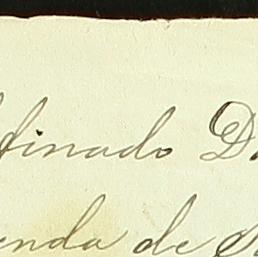 finado D
enda de